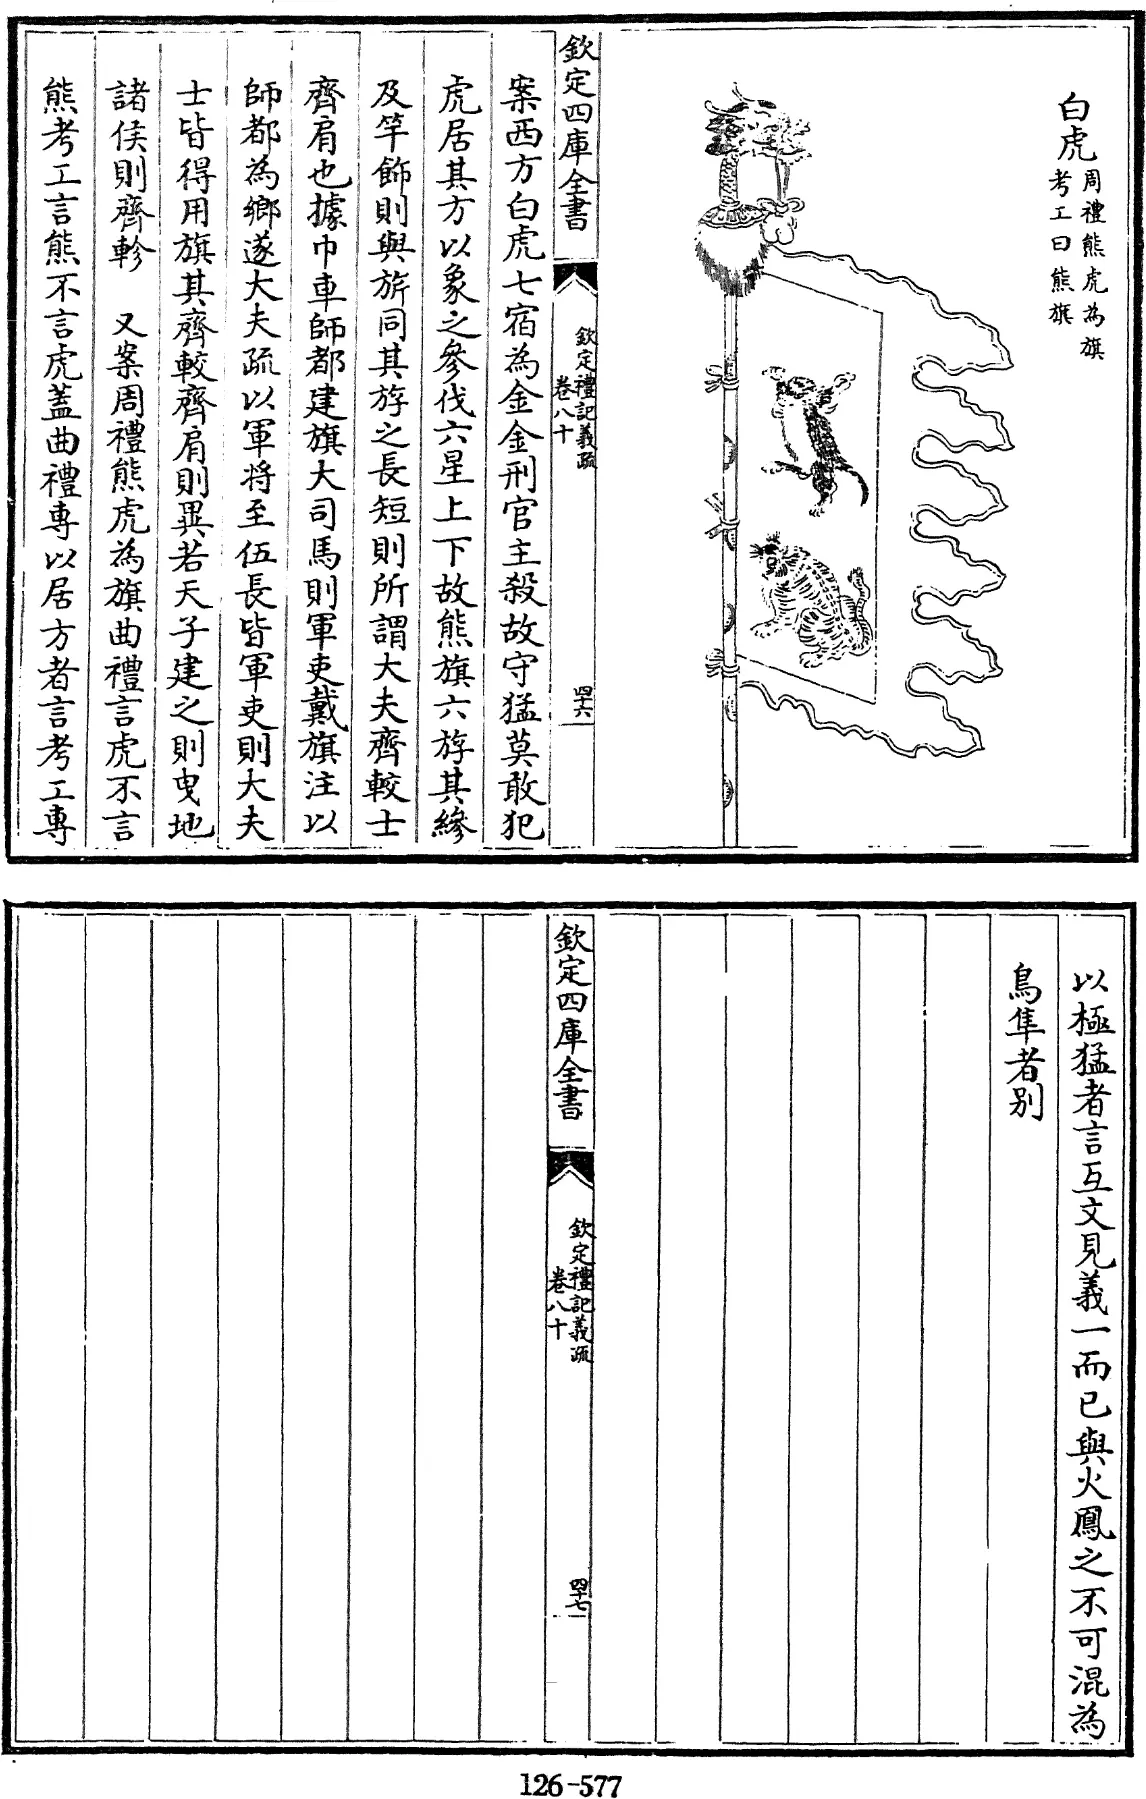 白虎
周禮熊虎為旗
考工曰熊旗
欽定四庫全書
欽定禮記義疏
卷八十
四十六
案西方白虎七宿為金金刑官主殺故守猛莫敢犯
虎居其方以象之參伐六星上下故熊旗六斿其縿
及竿飾則與旂同其斿之長短則所謂大夫齊較士
齊肩也據巾車師都建旗大司馬則軍吏戴旗注以
師都為鄉遂大夫疏以軍將至伍長皆軍吏則大夫
士皆得用旗其齊較齊肩則異若天子建之則曳地
諸侯則齊軫　又案周禮熊虎為旗曲禮言虎不言
熊考工言熊不言虎蓋曲禮專以居方者言考工專
以極猛者言互文見義一而已與火鳳之不可混為
鳥隼者別
欽定四庫全書
欽定禮記義疏
卷八十
四十七
126-577